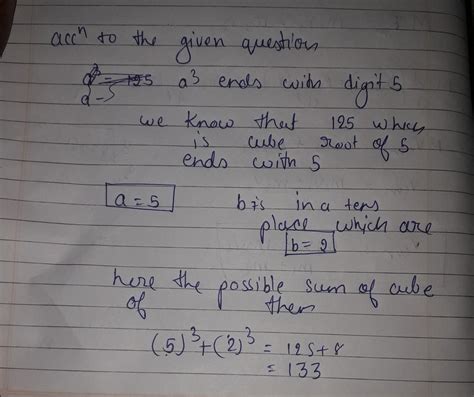 accn to the given question
a³ ends with digit 5
a - 5
we know that 125 which
is cube root of 5
ends with 5
a = 5
b is in a tens
place which are
b = 2
here the possible sum of cube
of them
(5)³ + (2)³ = 125 + 8
= 133